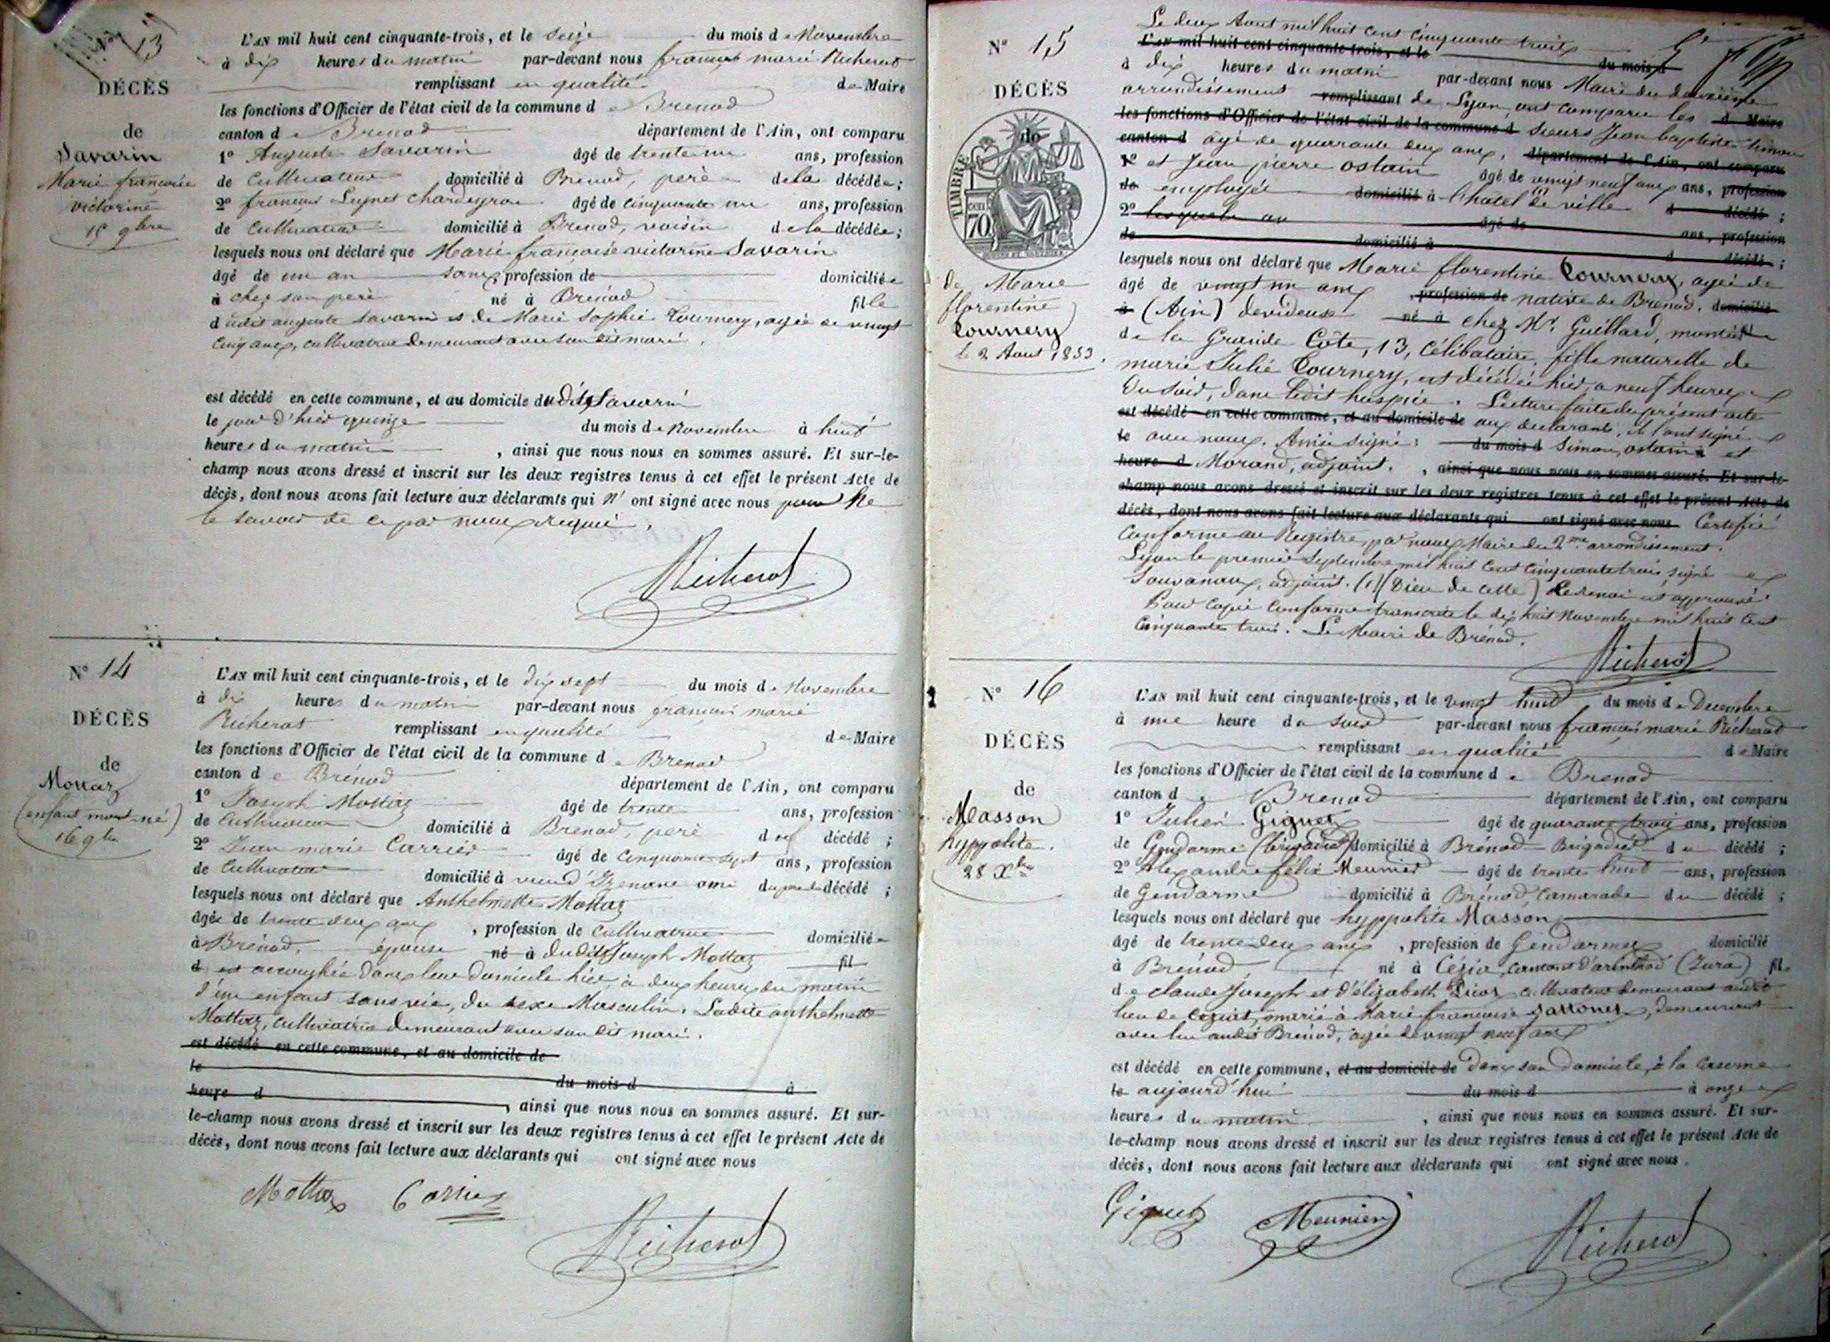 N° 13
DÉCÈS
de
Savarin
Marie francoise
victorine
15 9bre
L'AN mil huit cent cinquante-trois, et le seize du mois de Novembre
à dix heures du matin par-devant nous françois marie Richerot
remplissant en qualité de Maire
les fonctions d'Officier de l'état civil de la commune de Brenod
canton de Brenod département de l'Ain, ont comparu
1° Auguste Savarin âgé de trente un ans, profession
de Cultivateur domicilié à Brenod, père de la décédée;
2° francois Luynet Chardeyron âgé de cinquante un ans, profession
de Cultivateur domicilié à Brenod, voisin de la décédée;
lesquels nous ont déclaré que Marie francoise victorine Savarin
âgé de un an sans profession de domiciliée
à chez son père né à Brénod fille
dudit auguste Savarin et de Marie Sophie Tournery, agée de vingt
cinq ans, cultivatrice demeurant avec son dit mari.
est décédé en cette commune, et au domicile dudit Savarin
le jour d'hier quinze du mois de Novembre à huit
heures du matin , ainsi que nous nous en sommes assuré. Et sur-le-
champ nous avons dressé et inscrit sur les deux registres tenus à cet effet le présent Acte de
décès, dont nous avons fait lecture aux déclarants qui n'ont signé avec nous pour ne
le savoir de ce par nous requis.
Richerot
N° 14
DÉCÈS
de
Mottaz
(enfant mort-né)
16 9bre
L'AN mil huit cent cinquante-trois, et le dix sept du mois de Novembre
à dix heures du matin par-devant nous françois marie
Richerot remplissant en qualité de Maire
les fonctions d'Officier de l'état civil de la commune de Brenod
canton de Brénod département de l'Ain, ont comparu
1° Joseph Mottaz âgé de trente ans, profession
de Cultivateur domicilié à Brenod, père du décédé ;
2° Jean marie Carrier âgé de cinquante sept ans, profession
de Cultivateur domicilié à vieu d'Izenave ami du père du décédé ;
lesquels nous ont déclaré que Anthelmette Mottaz
âgée de trente deux ans , profession de cultivatrice domiciliée
à Brénod, épouse né à dudit Joseph Mottaz fil
d est accouchée dans leur domicile hier, à deux heures du matin
d'un enfant sans vie, du sexe Masculin. Ladite anthelmette
Mottaz, cultivatrice demeurant avec son dit mari.
est décédé en cette commune, et au domicile de
le du mois d à
heure d , ainsi que nous nous en sommes assuré. Et sur-
le-champ nous avons dressé et inscrit sur les deux registres tenus à cet effet le présent Acte de
décès, dont nous avons fait lecture aux déclarants qui ont signé avec nous
Mottaz Carrier
Richerot
N° 15
DÉCÈS
de
TIMBRE
70
de Marie
florentine
Tournery
le 2 Aout 1853.
Le deux Aout mil huit cent cinquante trois
L'AN mil huit cent cinquante-trois, et le du mois d
à dix heures du matin par-devant nous Maire du deuxième
arrondissement remplissant de Lyon, ont comparu les d Maire
les fonctions d'Officier de l'état civil de la commune d Sieurs Jean baptiste Simon
canton d agé de quarante deux ans, département de l'Ain, ont comparu
1° et Jean pierre ostain âgé de vingt neuf ans ans, profession
de employés domicilié à l'hotel (1) de ville d décédé ;
2° lesquels an âgé de ans, profession
de domicilié à d décédé ;
lesquels nous ont déclaré que Marie florentine Tournery, agée de
âgé de vingt un ans profession de native de Brénod, domicilié
à (Ain) devideuse né à chez Mr. Guillard, montée fil
de la Grande Côte, 13, célibataire, fille naturelle de
marie Julie Tournery, est décédée hier, a neuf heures
du soir, dans ledit hospice. Lecture faite du présent acte
est décédé en cette commune, et au domicile de aux déclarants, ils ont signé
le avec nous. Ainsi signé : du mois d Simon, ostain et
heure d Morand, adjoint. , ainsi que nous nous en sommes assuré. Et sur-le-
champ nous avons dressé et inscrit sur les deux registres tenus à cet effet le présent Acte de
décès, dont nous avons fait lecture aux déclarants qui ont signé avec nous Certifié
conforme au Registre, par nous Maire du 2me arrondissement.
Lyon le premier Septembre mil huit cent cinquante trois, signé
adjoint. (1) (Dieu de cette) Le renvoi est approuvé.
Pour copie conforme transcrite le dix huit Novembre mil huit cent
cinquante trois. Le Maire de Brénod.
Richerot
N° 16
DÉCÈS
de
Masson
hyppolite.
28 Xbre
L'AN mil huit cent cinquante-trois, et le vingt huit du mois de Decembre
à une heure du soir par-devant nous françois marie Richerot
remplissant en qualité de Maire
les fonctions d'Officier de l'état civil de la commune de Brenod
canton de Brenod département de l'Ain, ont comparu
1° Julien Giguet âgé de quarante trois ans, profession
de Gendarme (brigadier) domicilié à Brénod Brigadier du décédé ;
2° Alexandre félix Meunier âgé de trente huit ans, profession
de Gendarme domicilié à Brénod, Camarade du décédé ;
lesquels nous ont déclaré que hyppolite Masson
âgé de trente deux ans , profession de Gendarme domicilié
à Brénod, né à Cézia, canton d'arinthod (Jura) fils
de claude Joseph et d'élizabeth cultivateur demeurant audit
lieu de Céziat, marié à Marie francoise Jattonet, demeurant
avec lui audit Brénod, agée de vingt neuf ans
est décédé en cette commune, et au domicile de dans son domicile, à la caserne
le aujourd'hui du mois d à onze
heures du matin , ainsi que nous nous en sommes assuré. Et sur-
le-champ nous avons dressé et inscrit sur les deux registres tenus à cet effet le présent Acte de
décès, dont nous avons fait lecture aux déclarants qui ont signé avec nous.
Giguet Meunier
Richerot